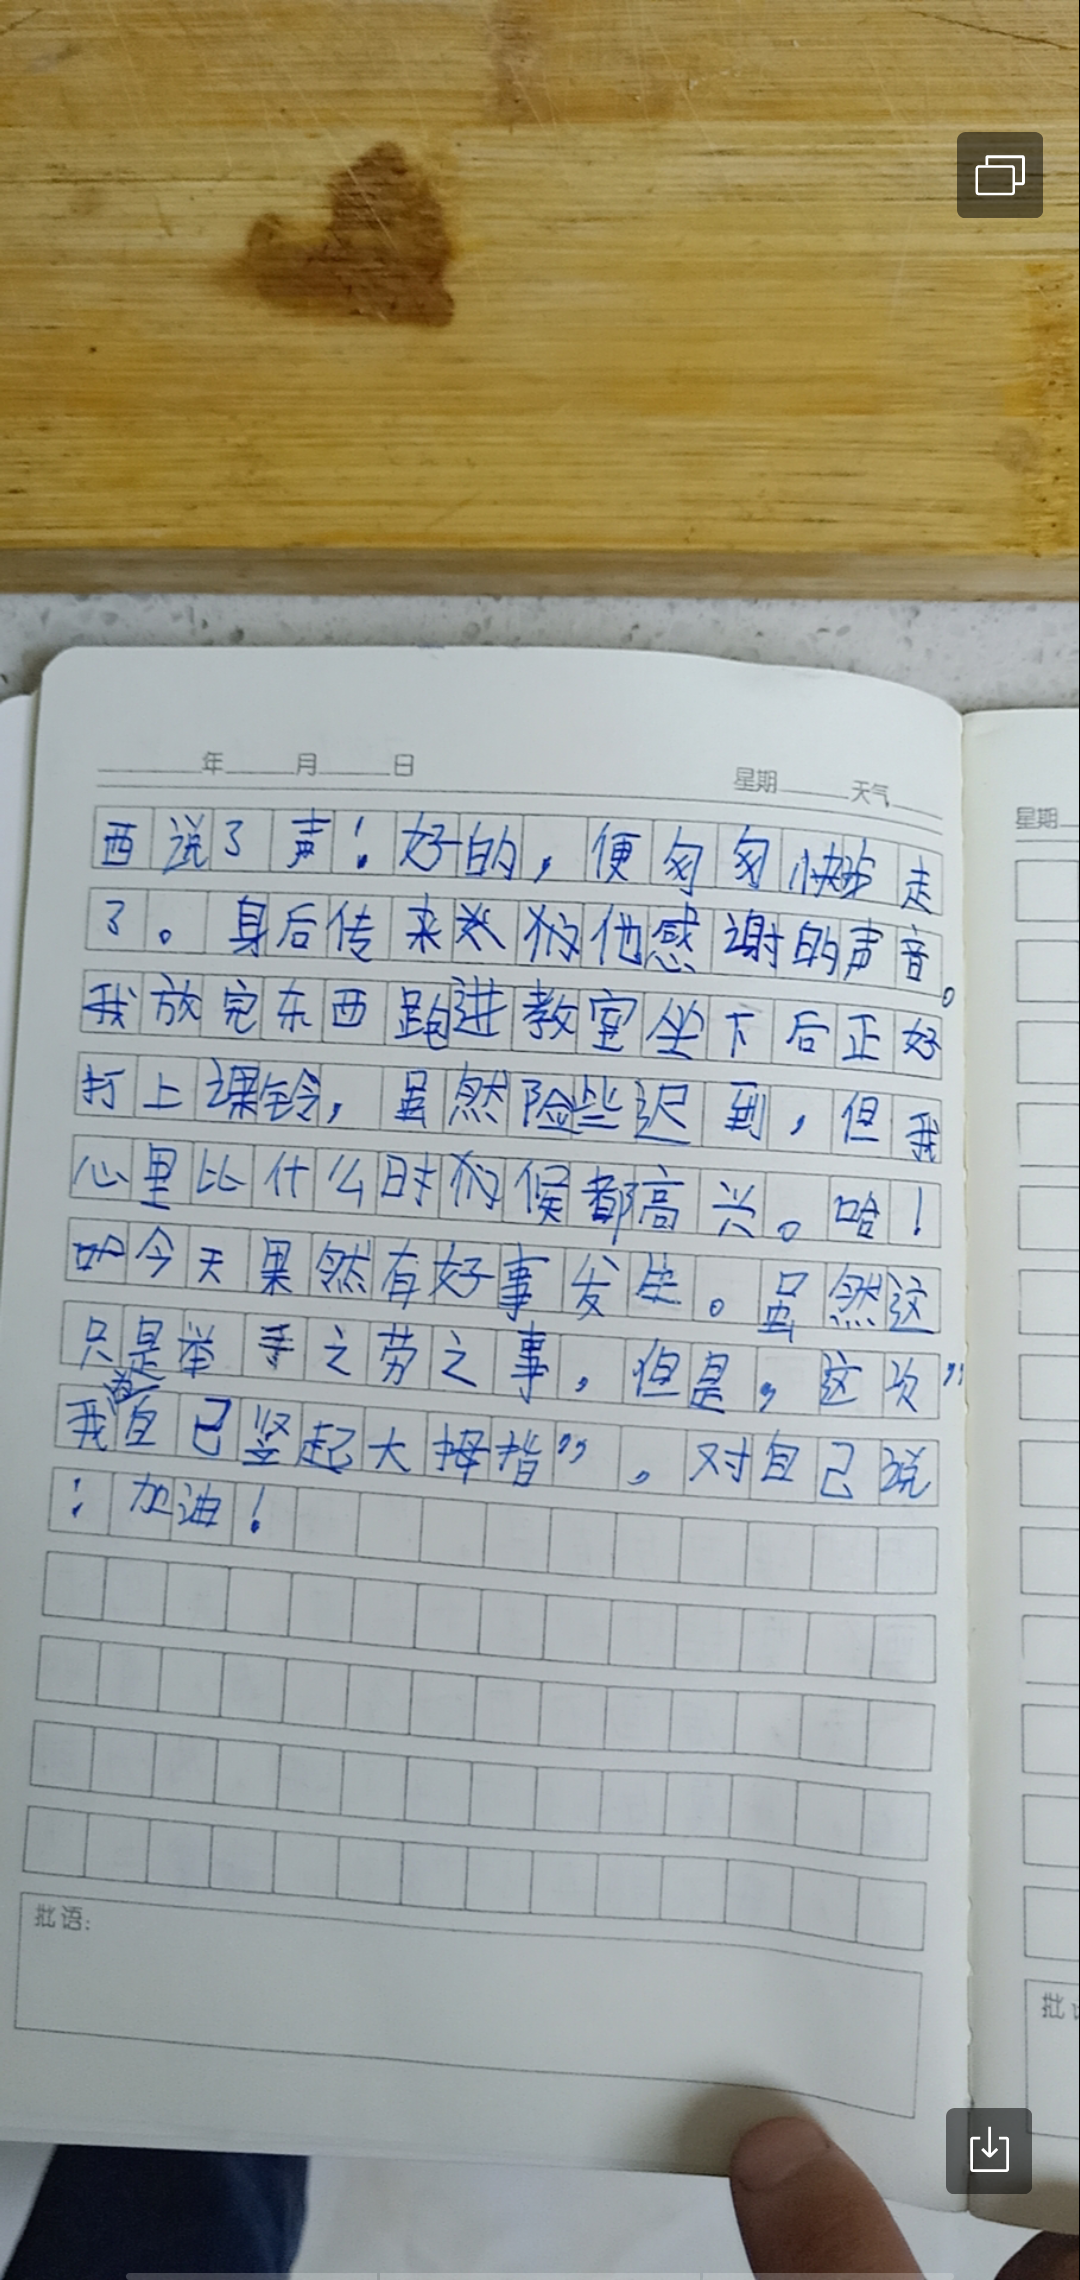 年 月 日
星期 天气
星期
西说了声！好的，便匆匆快步走
了。身后传来他感谢的声音。
我放完东西跑进教室坐下后正好
打上课铃，虽然险些迟到，但我
心里比什么时候都高兴。哈！
今天果然有好事发生。虽然这
只是举手之劳之事，但是，这次”
我为自己竖起大拇指”，对自己说
：加油！
批语：